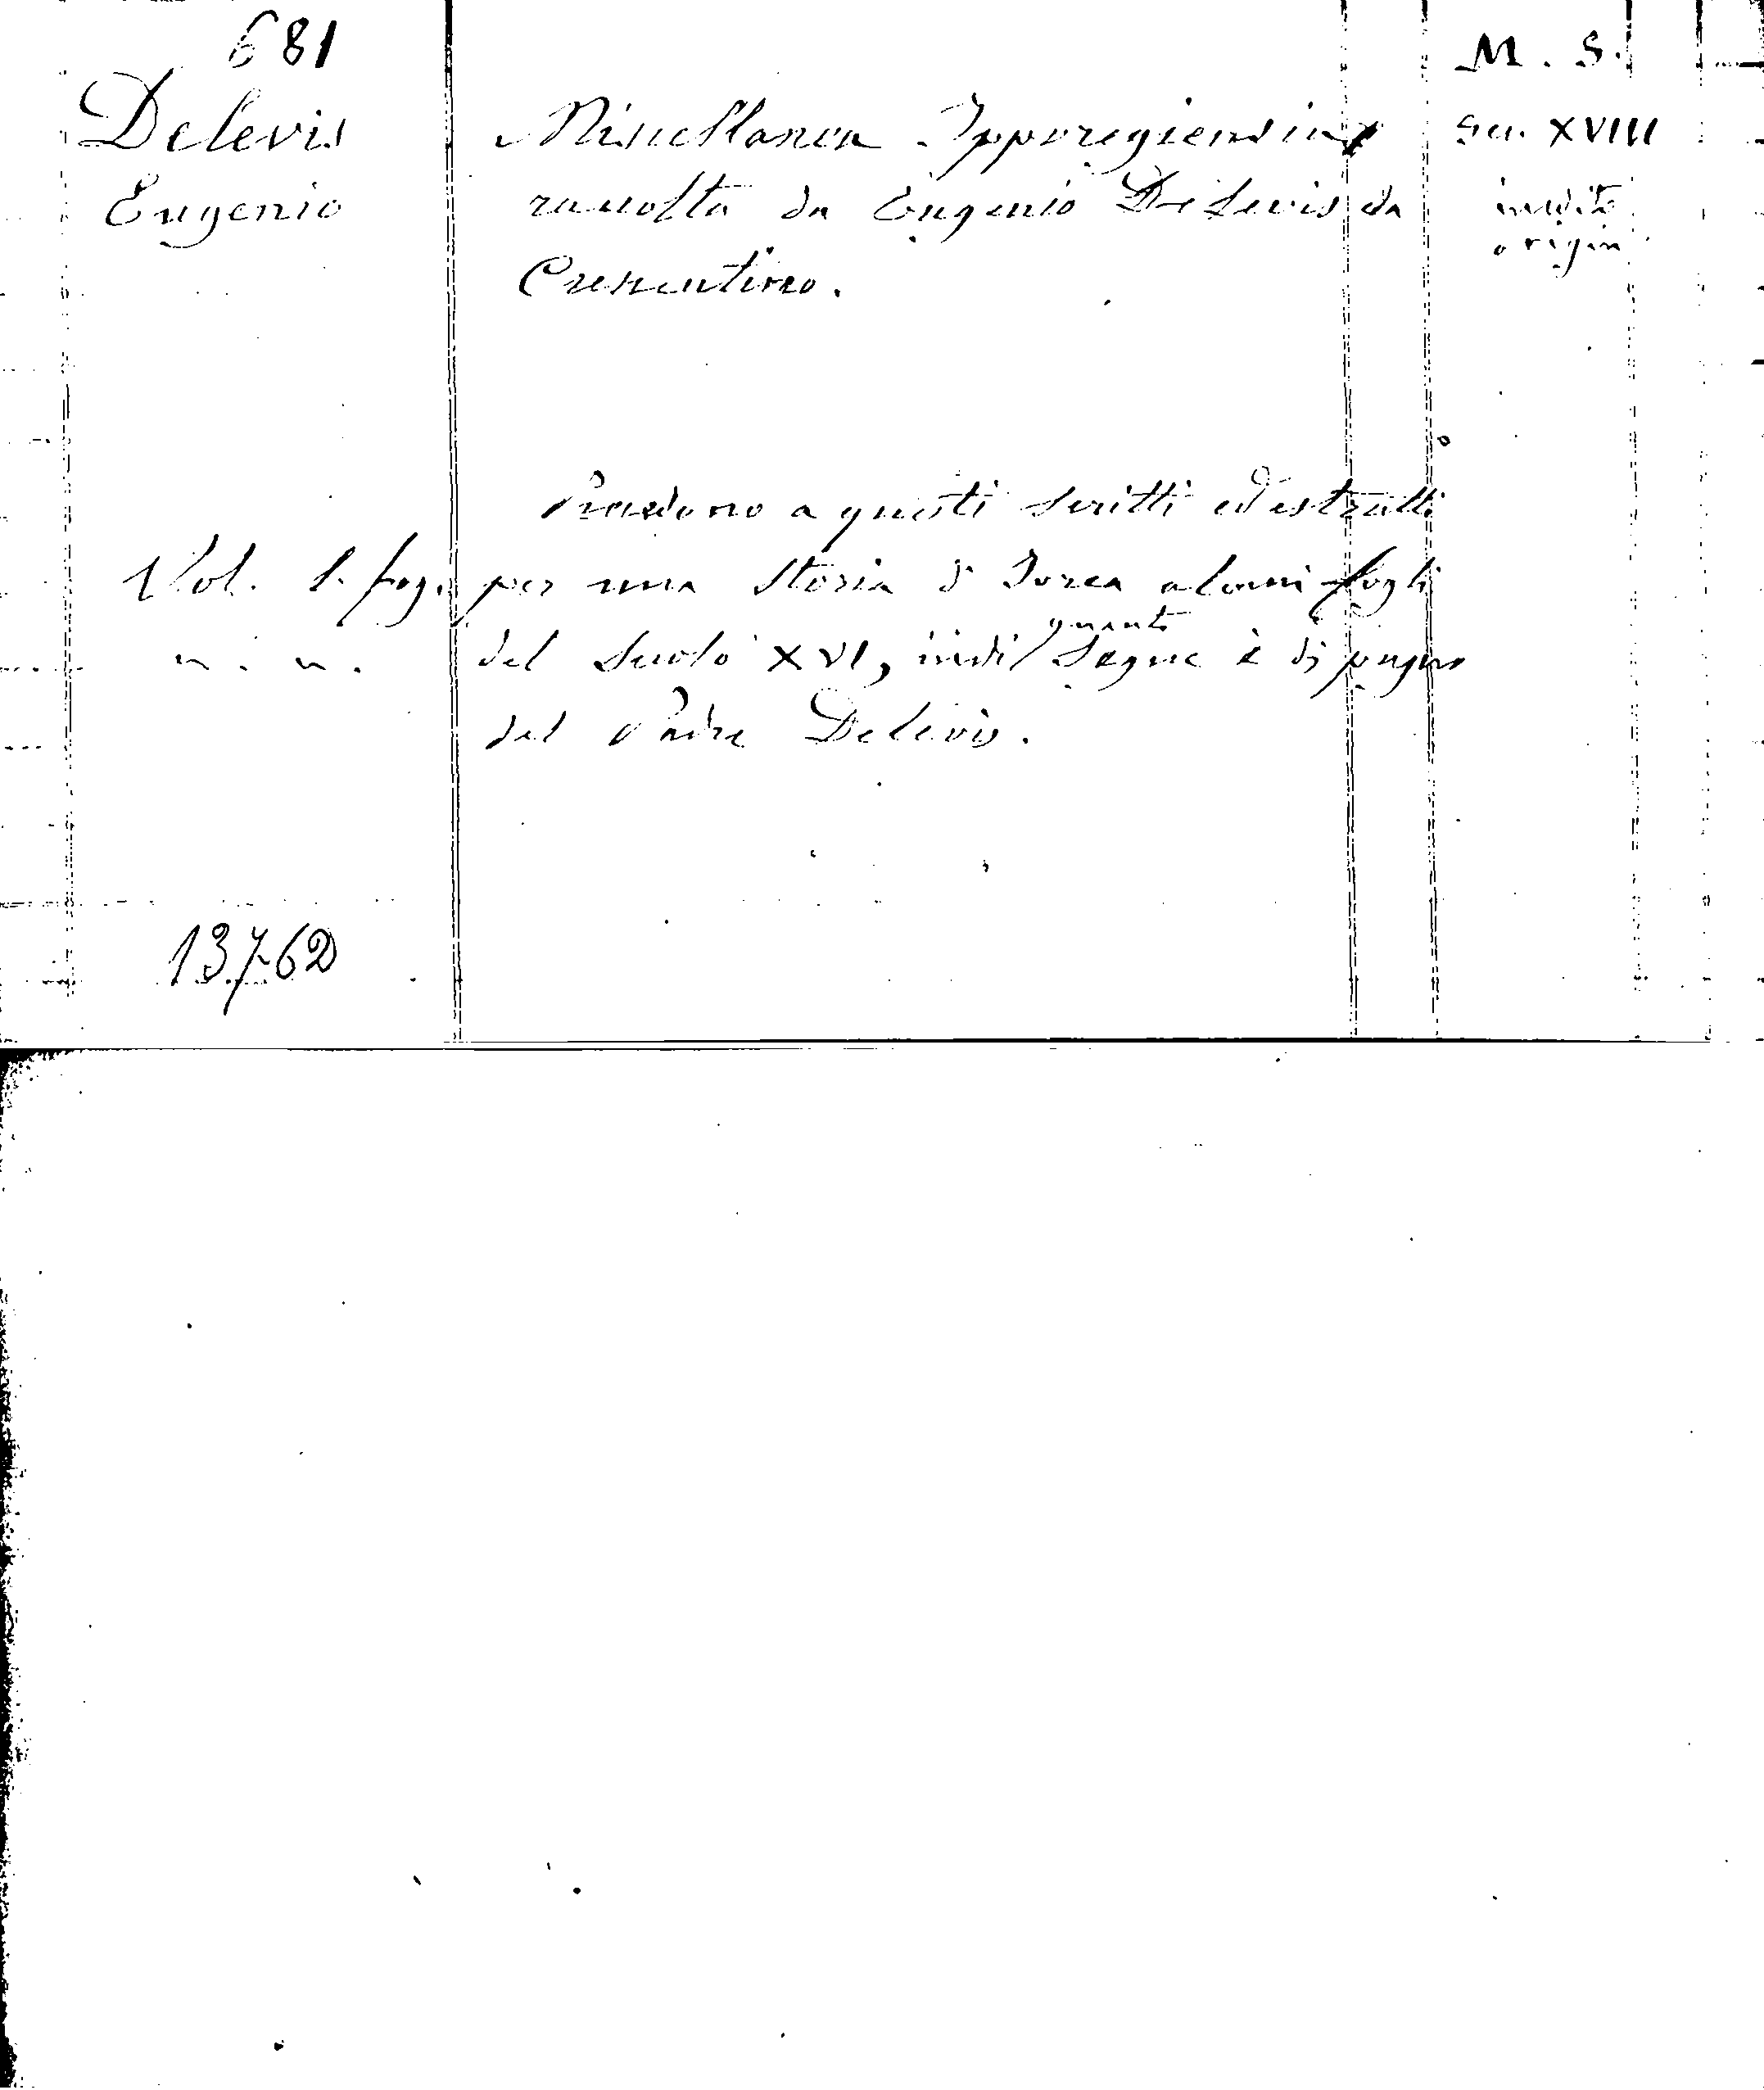 681
M. S.
Delevis
Eugenio
Miscellanea Ipporegiensia
raccolta da Eugenio DeLevis da
Crescentino.
Sec. XVIII
inedito
origin.
Precedono a questi scritti ed estratti
Vol. 1. pag. per una Storia di Ivrea alcuni fogli
n. n. del Secolo XVI, indi quanto Segue è di pugno
del Padre Delevis.
13762